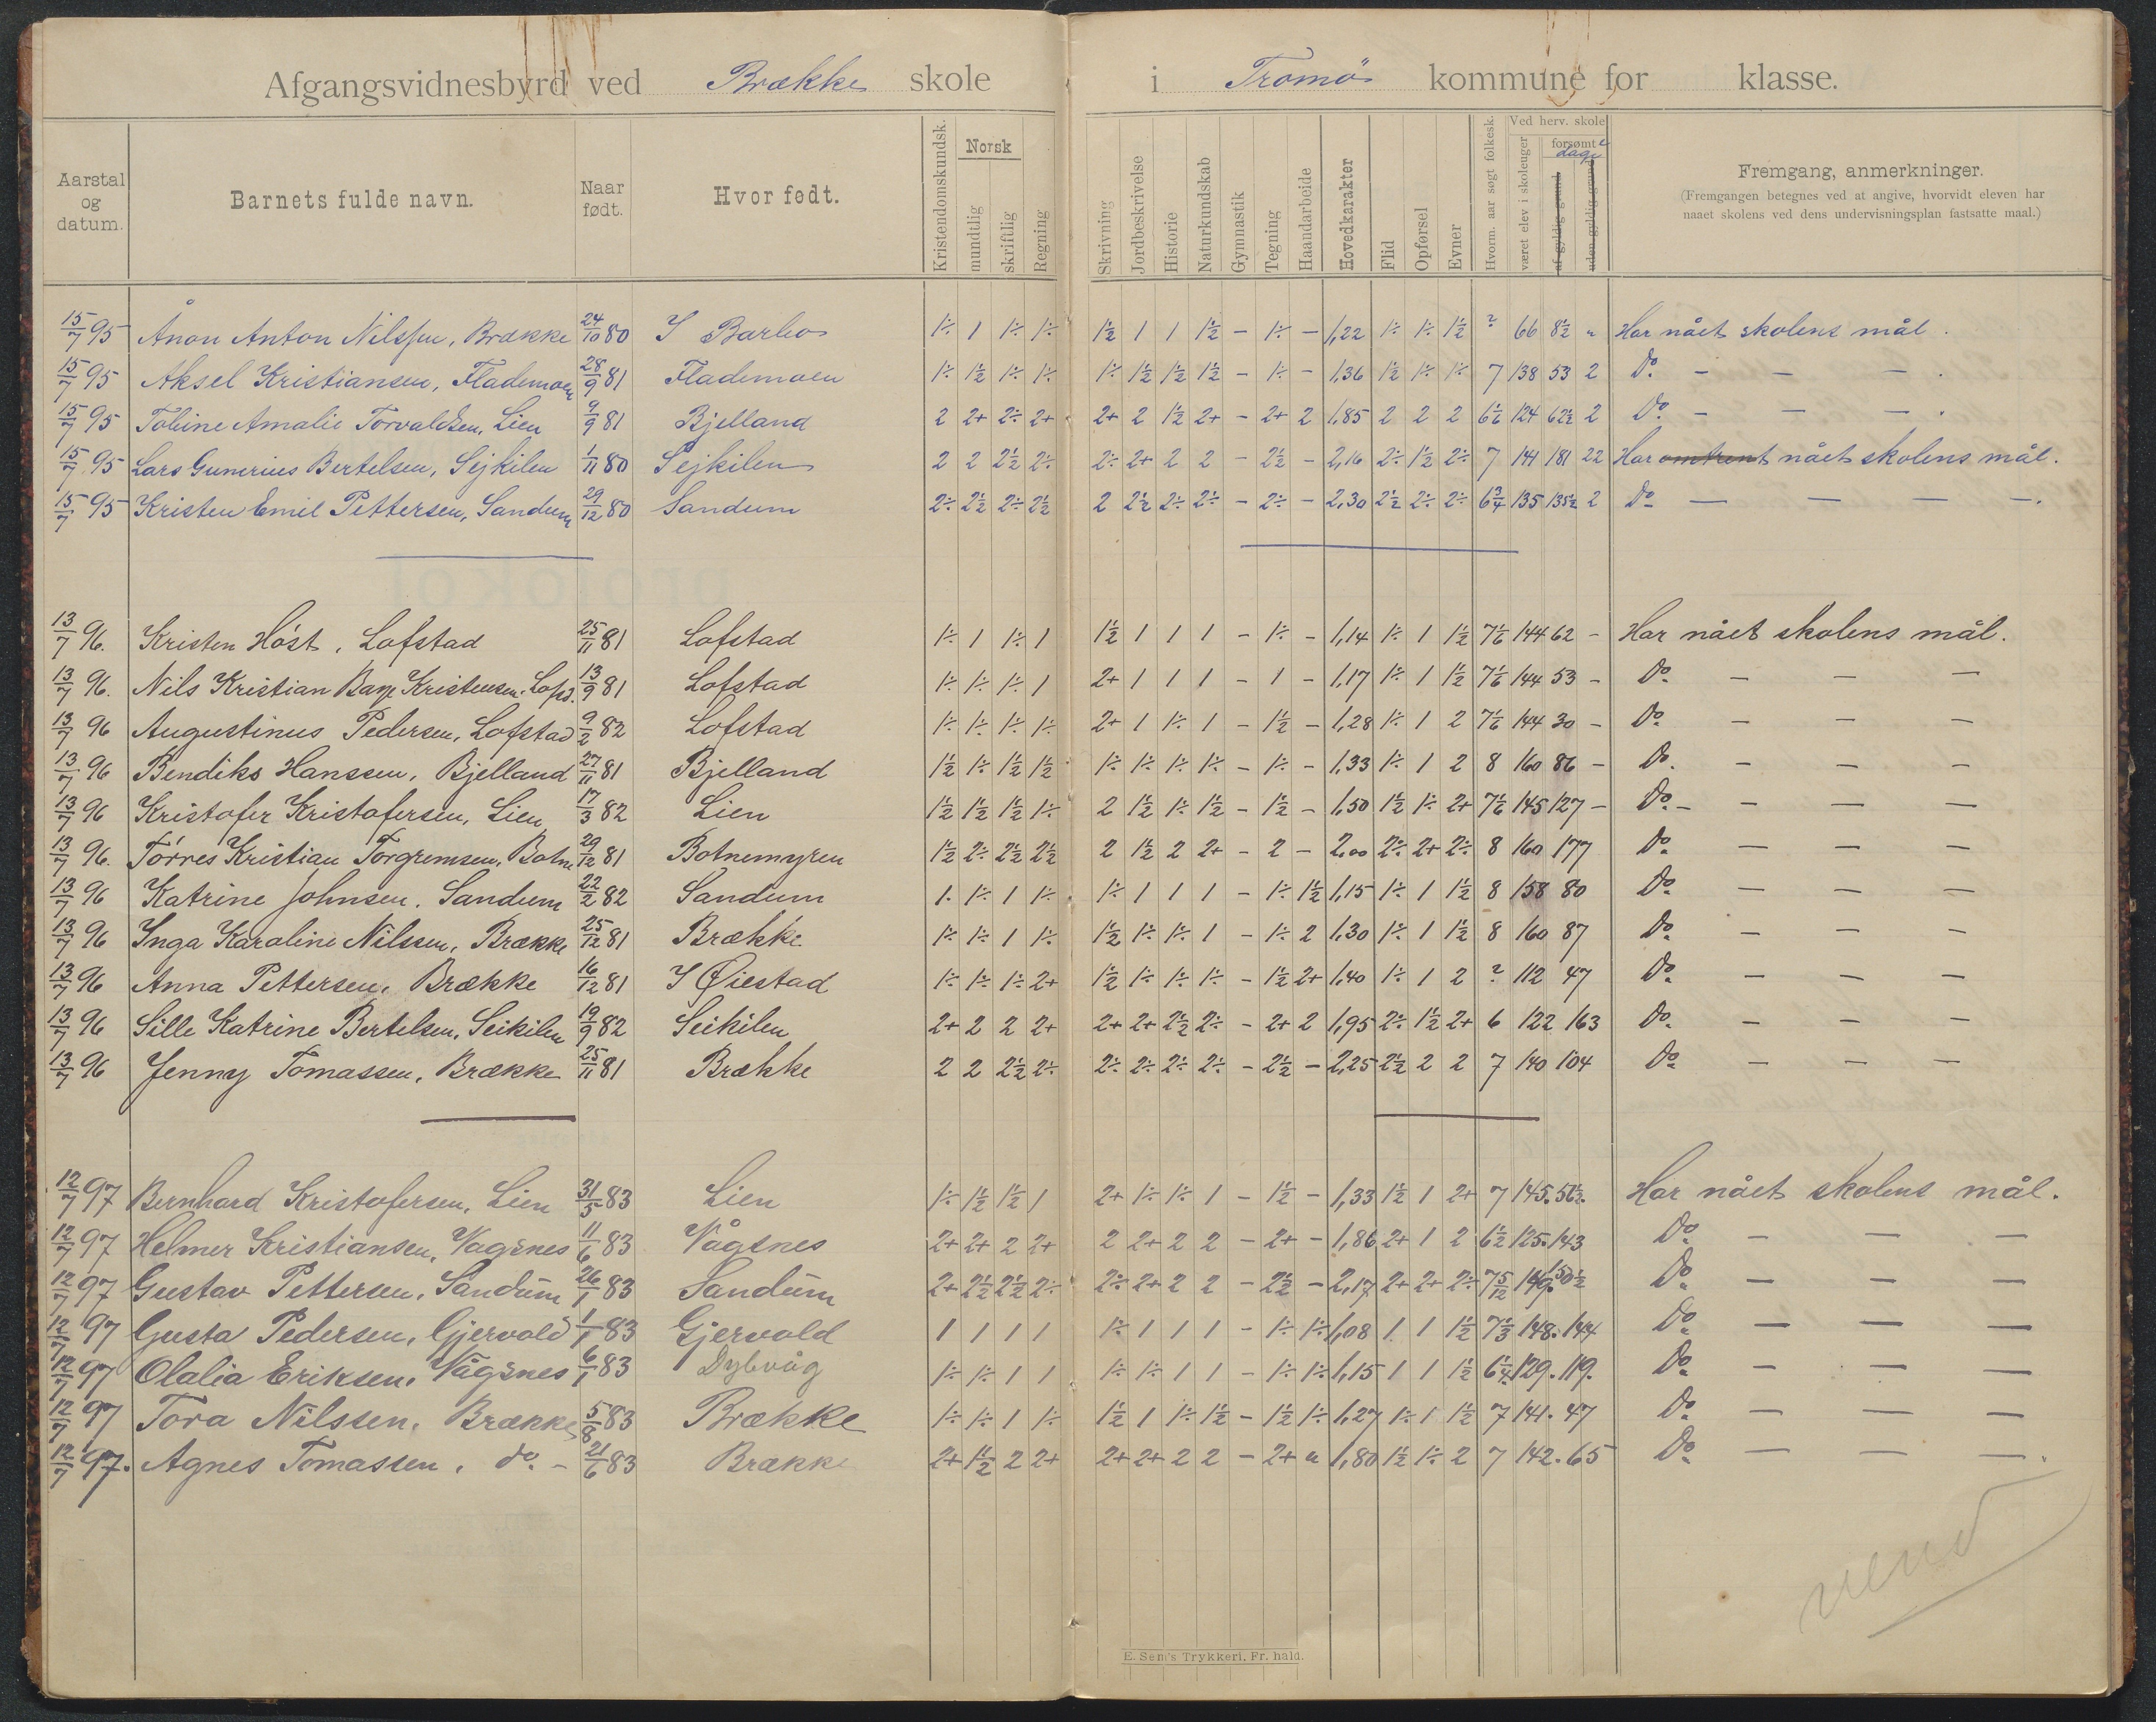 Afgangsvidnesbyrd ved Brække skole i Tromö kommune for klasse.
Aarstal og datum. Barnets fulde navn. Naar født. Hvor født. Kristendomskundsk. Norsk mundtlig skriftlig Regning Skrivning Jordbeskrivelse Historie Naturkundskab Gymnastik Tegning Haandarbeide Hovedkarakter Flid Opførsel Evner Hvorm. aar søgt folkesk. Ved herv. skole været elev i skoleuger forsømte dage af gyldig grund uden gyldig grund Fremgang, anmerkninger.
(Fremgangen betegnes ved at angive, hvorvidt eleven har
naaet skolens ved dens undervisningsplan fastsatte maal.)
15/7 95 Ånon Anton Nilssen, Brække 24/10 80 I Barbo 1÷ 1 1÷ 1÷ 1½ 1 1 1½ - 1÷ - 1,22 1÷ 1÷ 1½ ? 66 8½ " Har nået skolens mål.
15/7 95 Aksel Kristiansen, Flademoen 28/9 81 Flademoen 1÷ 1½ 1÷ 1÷ 1÷ 1½ 1½ 1½ - 1÷ - 1,36 1½ 1÷ 1÷ 7 138 53 2 Do. - - - .
15/7 95 Tobine Amalie Torvaldsen, Lien 9/9 81 Bjelland 2 2+ 2÷ 2+ 2+ 2 1½ 2+ - 2+ 2 1,85 2 2 2 6⅙ 124 62½ 2 Do. - - - .
15/7 95 Lars Gunerius Bertelsen, Sejkilen 1/11 80 Sejkilen 2 2 2½ 2÷ 2÷ 2+ 2 2 - 2½ - 2,16 2÷ 1½ 2÷ 7 141 181 22 Har omtrent nået skolens mål.
15/7 95 Kristen Emil Pettersen, Sandum 29/12 80 Sandum 2÷ 2½ 2÷ 2½ 2 2½ 2÷ 2÷ - 2÷ - 2,30 2½ 2÷ 2÷ 6¾ 135 135½ 2 Do - - - -.
13/7 96. Kristen Höst, Lofstad 25/11 81 Lofstad 1÷ 1 1÷ 1 1½ 1 1 1 - 1÷ - 1,14 1÷ 1 1½ 7⅙ 144 62 - Har nået skolens mål.
13/7 96. Nils Kristian Bay Kristensen, Lofsd. 13/9 81 Lofstad 1÷ 1÷ 1÷ 1 2+ 1 1 1 - 1 - 1,17 1÷ 1 1½ 7⅙ 144 53 - Do. - - -
13/7 96 Augustinus Pedersen, Lofstad 9/2 82 Lofstad 1÷ 1÷ 1÷ 1÷ 2+ 1 1÷ 1 - 1½ - 1,28 1÷ 1 2 7⅙ 144 30 - Do - - -
13/7 96 Bendiks Hanssen, Bjelland 27/11 81 Bjelland 1½ 1÷ 1½ 1½ 1÷ 1÷ 1÷ 1÷ - 1÷ - 1,33 1÷ 1 2 8 160 86 - Do. - - -
13/7 96 Kristofer Kristofersen, Lien 17/3 82 Lien 1½ 1½ 1½ 1÷ 2 1½ 1÷ 1½ - 1½ - 1,50 1½ 1÷ 2+ 7⅙ 145 127 - Do. - - - -
13/7 96. Törres Kristian Torgremsen, Botne 29/12 81 Botnemyren 1½ 2÷ 2½ 2½ 2 1½ 2 2+ - 2 - 2,00 2÷ 2+ 2÷ 8 160 177 Do. - - -
13/7 96 Katrine Johnsen, Sandum 22/2 82 Sandum 1. 1÷ 1 1÷ 1÷ 1 1 1 - 1÷ 1½ 1,15 1÷ 1 1½ 8 158 80 Do. - - -
13/7 96 Inga Karoline Nilssen, Brække 25/12 81 Brække 1÷ 1÷ 1 1÷ 1½ 1÷ 1÷ 1 - 1÷ 2 1,30 1÷ 1 1½ 8 160 87 Do. - - -
13/7 96 Anna Pettersen, Brække 16/12 81 I Øiestad 1÷ 1÷ 1÷ 2+ 1½ 1÷ 1÷ 1÷ - 1½ 2+ 1,40 1÷ 1 2 ? 112 47 Do. - - -
13/7 96 Sille Katrine Bertelsen, Seikilen 19/9 82 Seikilen 2+ 2 2 2+ 2+ 2+ 2½ 2÷ - 2+ 2 1,95 2÷ 1½ 2+ 6 122 163 Do. - - -
13/7 96 Jenny Tomassen, Brække 25/11 81 Brække 2 2 2½ 2÷ 2÷ 2÷ 2÷ 2÷ - 2½ - 2,25 2½ 2 2 7 140 104 Do. - - -
12/7 97 Bernhard Kristofersen, Lien 31/5 83 Lien 1÷ 1½ 1½ 1 2+ 1÷ 1÷ 1 - 1½ - 1,33 1½ 1 2+ 7 145. 56½. Har nået skolens mål.
12/7 97 Helmer Kristiansen, Vagsnes 11/6 83 Vågsnes 2+ 2+ 2 2+ 2 2+ 2 2 - 2+ - 1,86 2+ 1 2 6½ 125. 143 Do. - - -
12/7 97 Gustav Pettersen, Sandum 26/1 83 Sandum 2+ 2½ 2½ 2÷ 2÷ 2+ 2 2 - 2½ - 2,17 2+ 2+ 2÷ 7 5/12 149. 150½ Do. - - -
12/7 97 Gusta Pedersen, Gjervold 1/1 83 Gjervold 1 1 1 1 1÷ 1 1 1 - 1÷ 1÷ 1,08 1 1 1½ 7⅓ 148. 144 Do. - - -
12/7 97 Olalia Eriksen, Vågsnes 6/1 83 Dybvåg 1÷ 1÷ 1 1 1÷ 1÷ 1 1 - 1÷ 1÷ 1,15 1 1 1½ 6¼ 129. 119. Do. - - -
12/7 97 Tora Nilssen, Brække 5/8 83 Brække 1÷ 1÷ 1 1÷ 1½ 1 1÷ 1½ - 1½ 1÷ 1,27 1÷ 1 1½ 7 141. 47 Do. - - -
12/7 97. Agnes Tomassen, do. - 21/6 83 Brække 2+ 1½ 2 2+ 2+ 2+ 2 2 - 2+ " 1,80 1½ 1÷ 2 7 142. 65 Do. - - -.
vend
E. Sem's Trykkeri, Fr. hald.